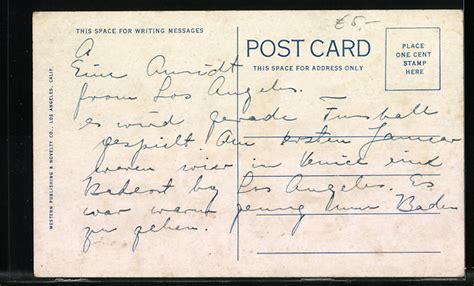 €5,-
THIS SPACE FOR WRITING MESSAGES
POST CARD
THIS SPACE FOR ADDRESS ONLY
PLACE
ONE CENT
STAMP
HERE
WESTERN PUBLISHING & NOVELTY CO., LOS ANGELES, CALIF.
Eine Ansicht
from Los Angeles.
es wird gerade Fussball
gespielt. Am ersten Januar
waren wir in Venice
Badeort by Los Angeles. Es
war warm genug zum Baden
zu gehen.